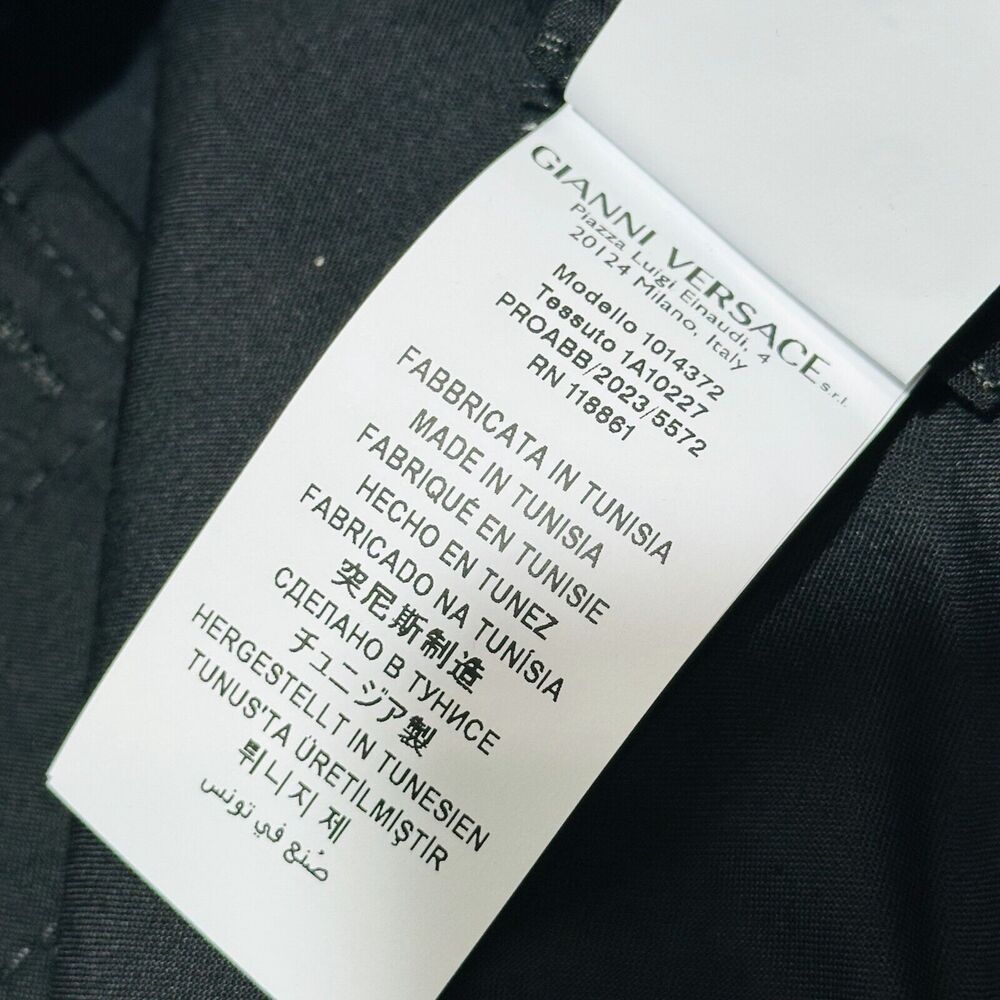 GIANNI VERSACE s.r.l.
Piazza Luigi Einaudi, 4
20124 Milano, Italy
Modello 1014372
Tessuto 1A10227
PROABB/2023/5572
RN 118861
FABBRICATA IN TUNISIA
MADE IN TUNISIA
FABRIQUÉ EN TUNISIE
HECHO EN TUNEZ
FABRICADO NA TUNÍSIA
突尼斯制造
СДЕЛАНО В ТУНИСЕ
チュニジア製
HERGESTELLT IN TUNESIEN
TUNUS'TA ÜRETİLMİŞTİR
튀니지 제
صُنع في تونس